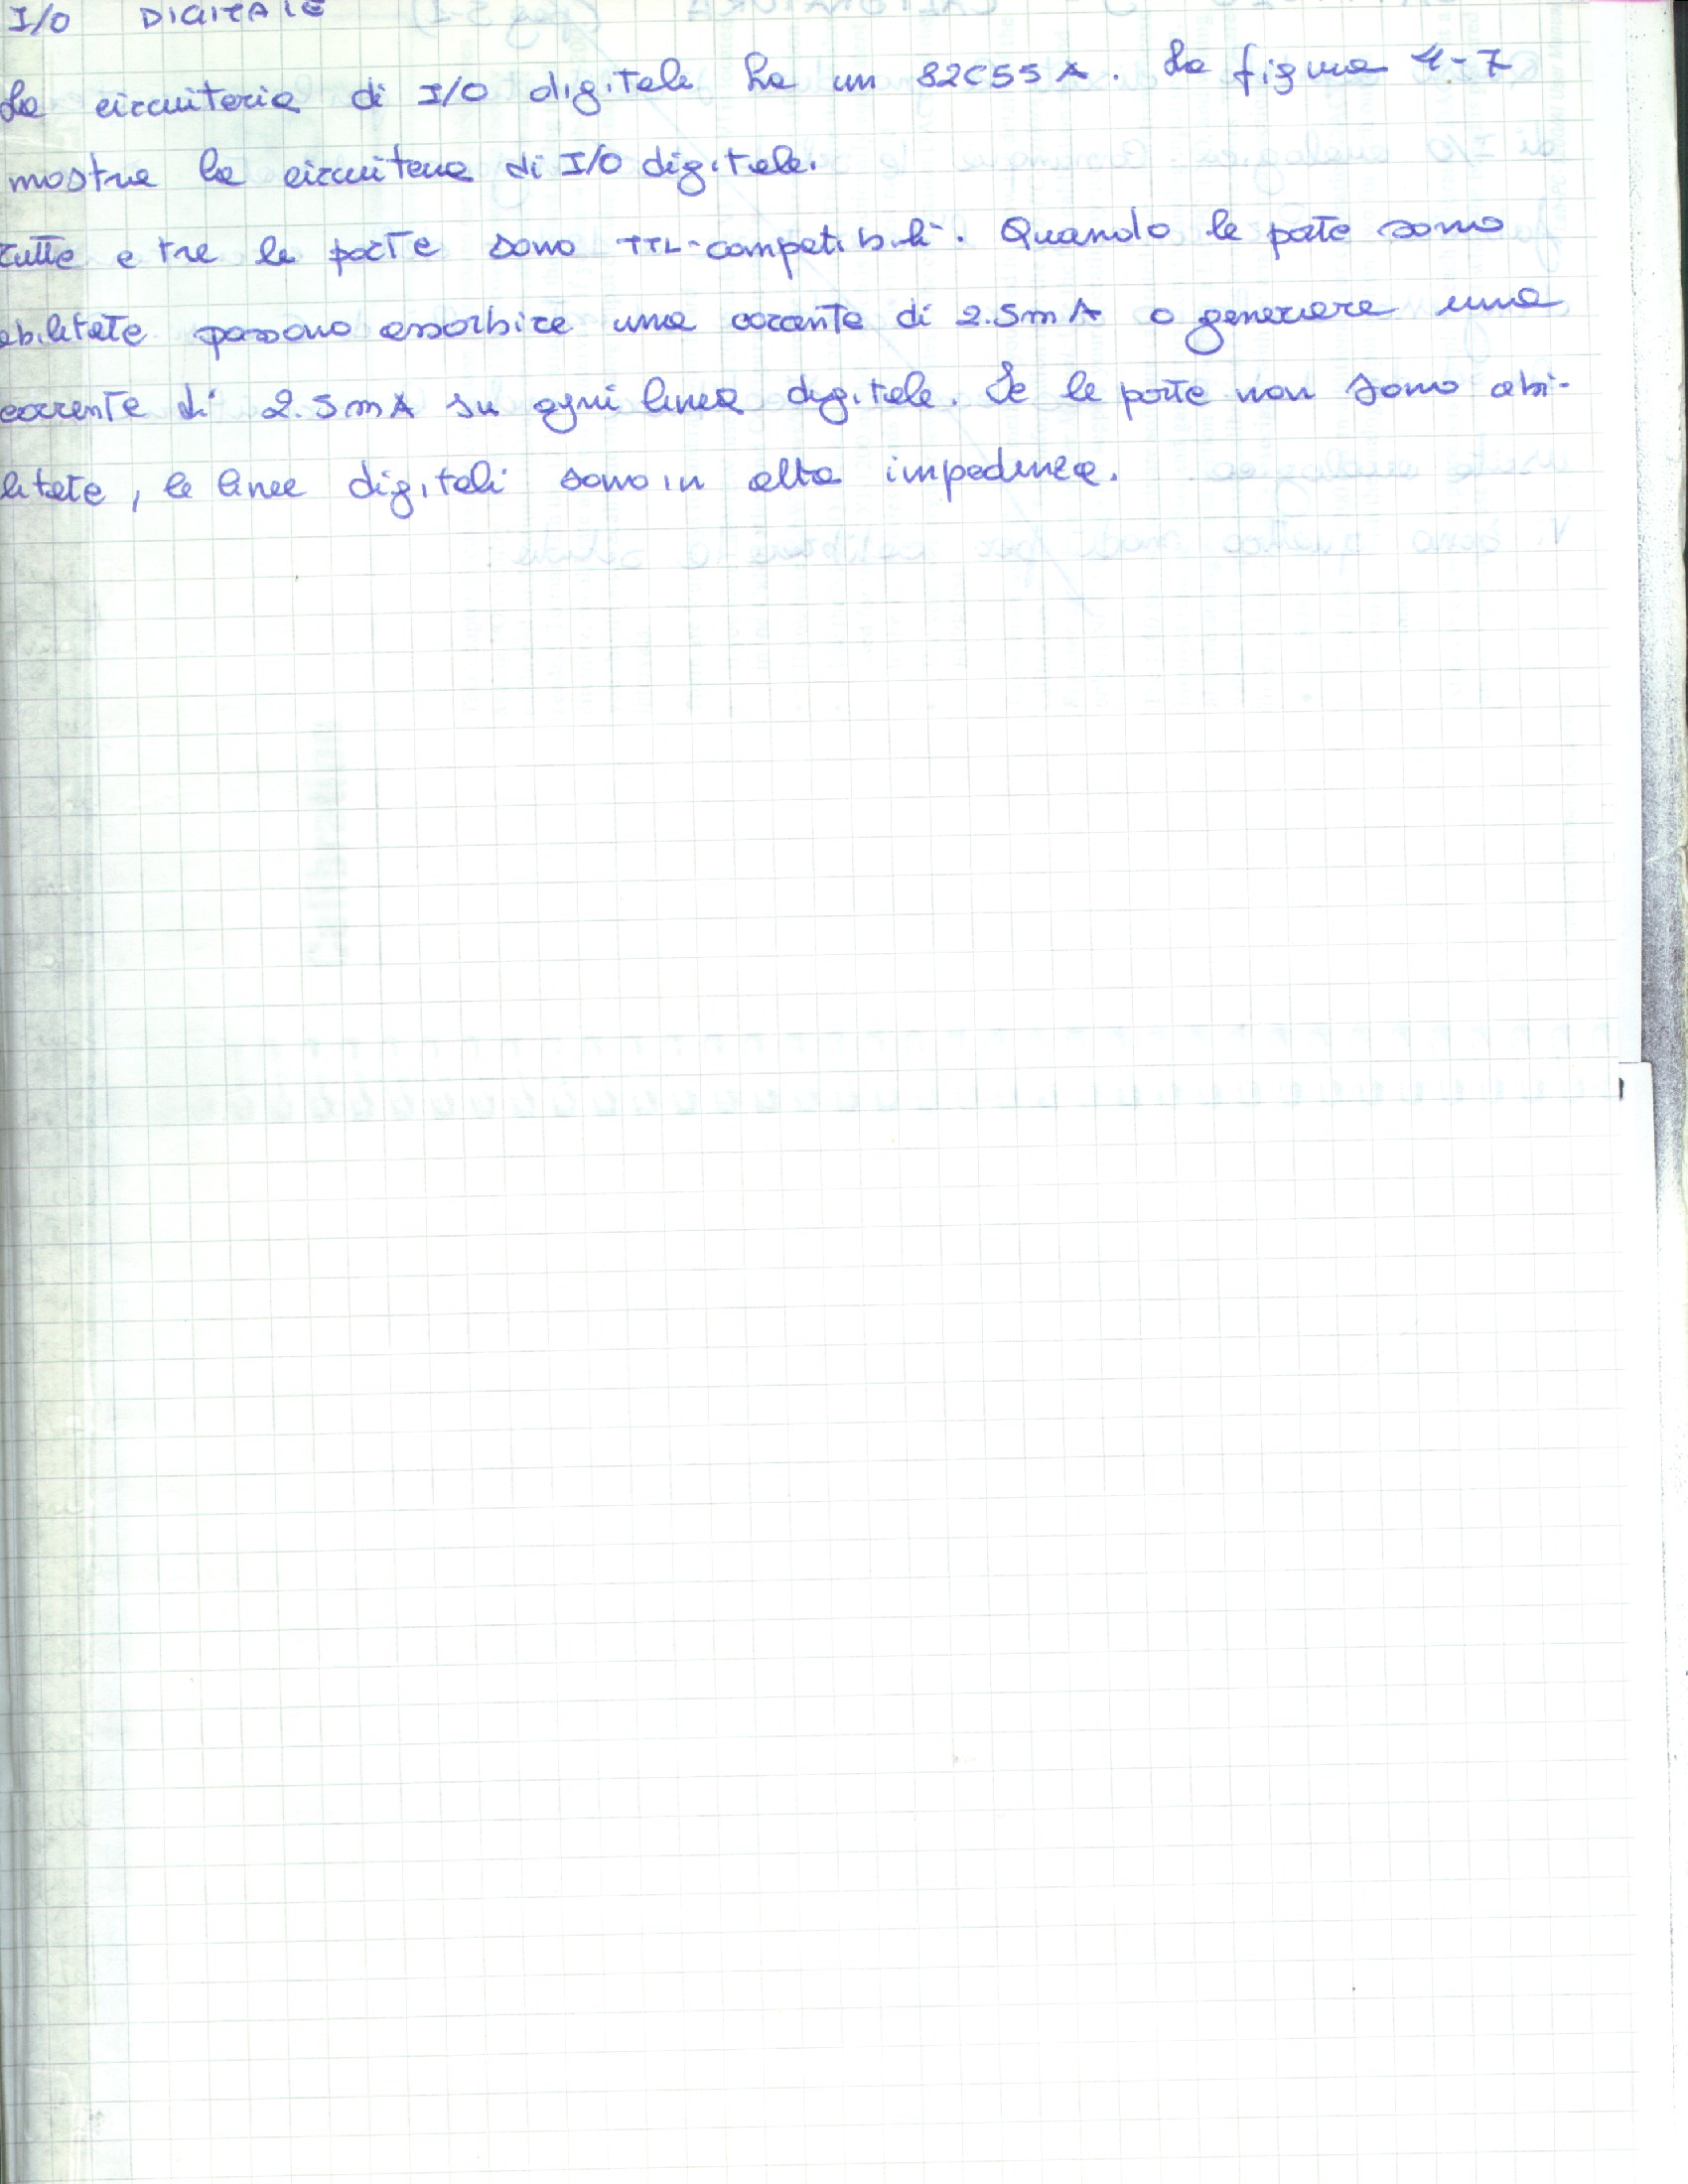 I/O DIGITALE
La circuiteria di I/O digitale ha un 82C55A. La figura 4-7
mostra la circuiteria di I/O digitale.
tutte e tre le porte sono TTL-compatibili. Quando le porte sono
abilitate possono assorbire una corrente di 2.5mA o generare una
corrente di 2.5mA su ogni linea digitale. Se le porte non sono abi-
litate, le linee digitali sono in alta impedenza.